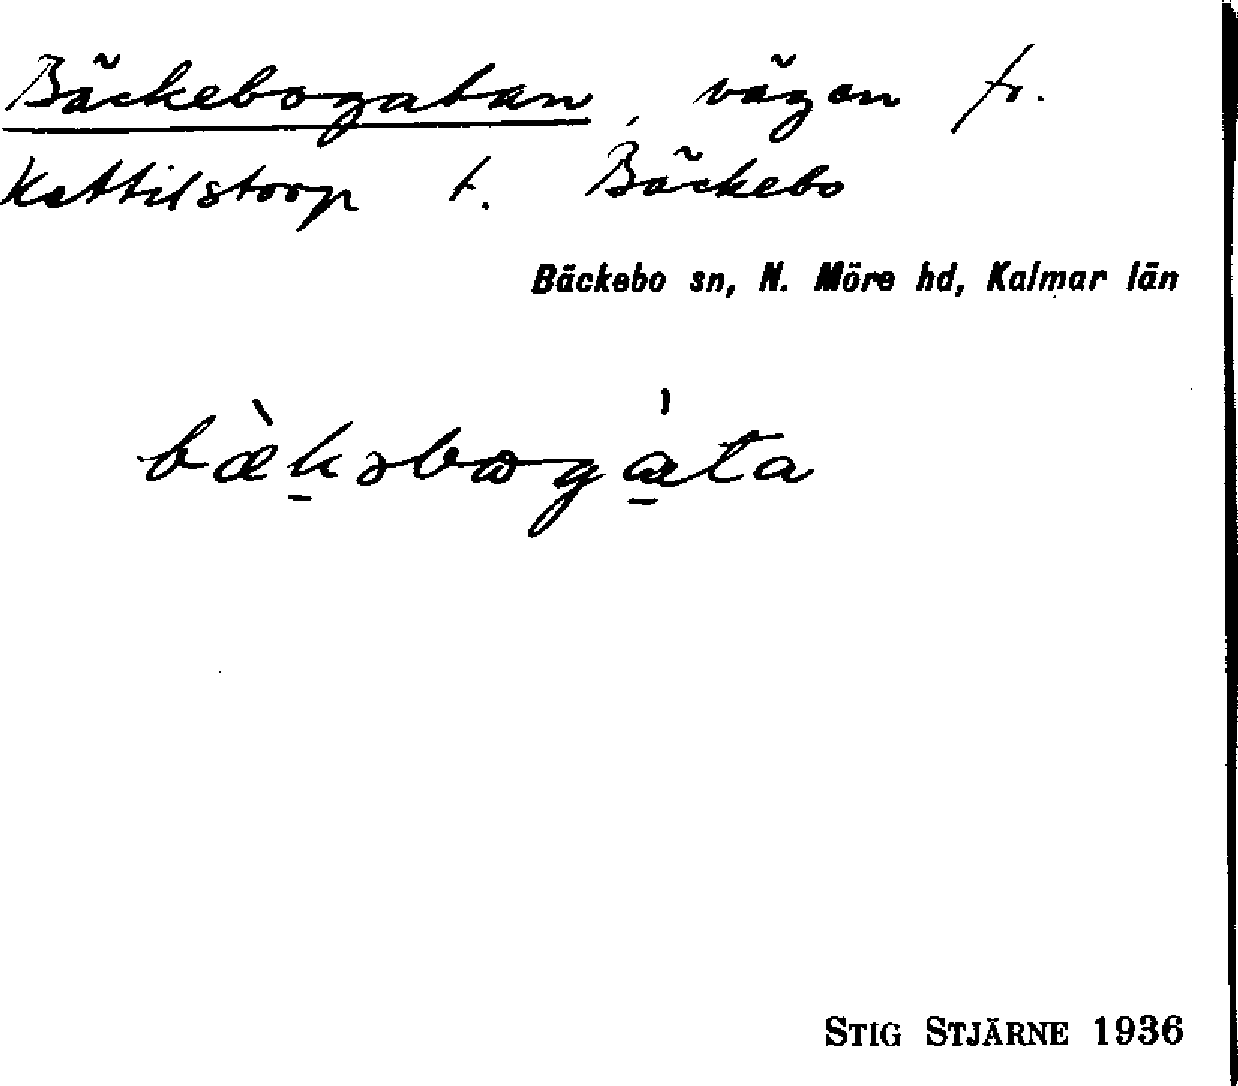 Bäckebogatan, vägen fr.
Kettilstorp t. Bäckebo
Bäckebo sn, N. Möre hd, Kalmar län
bæ̀k̠əbωga̠̍ta
STIG STJÄRNE 1936